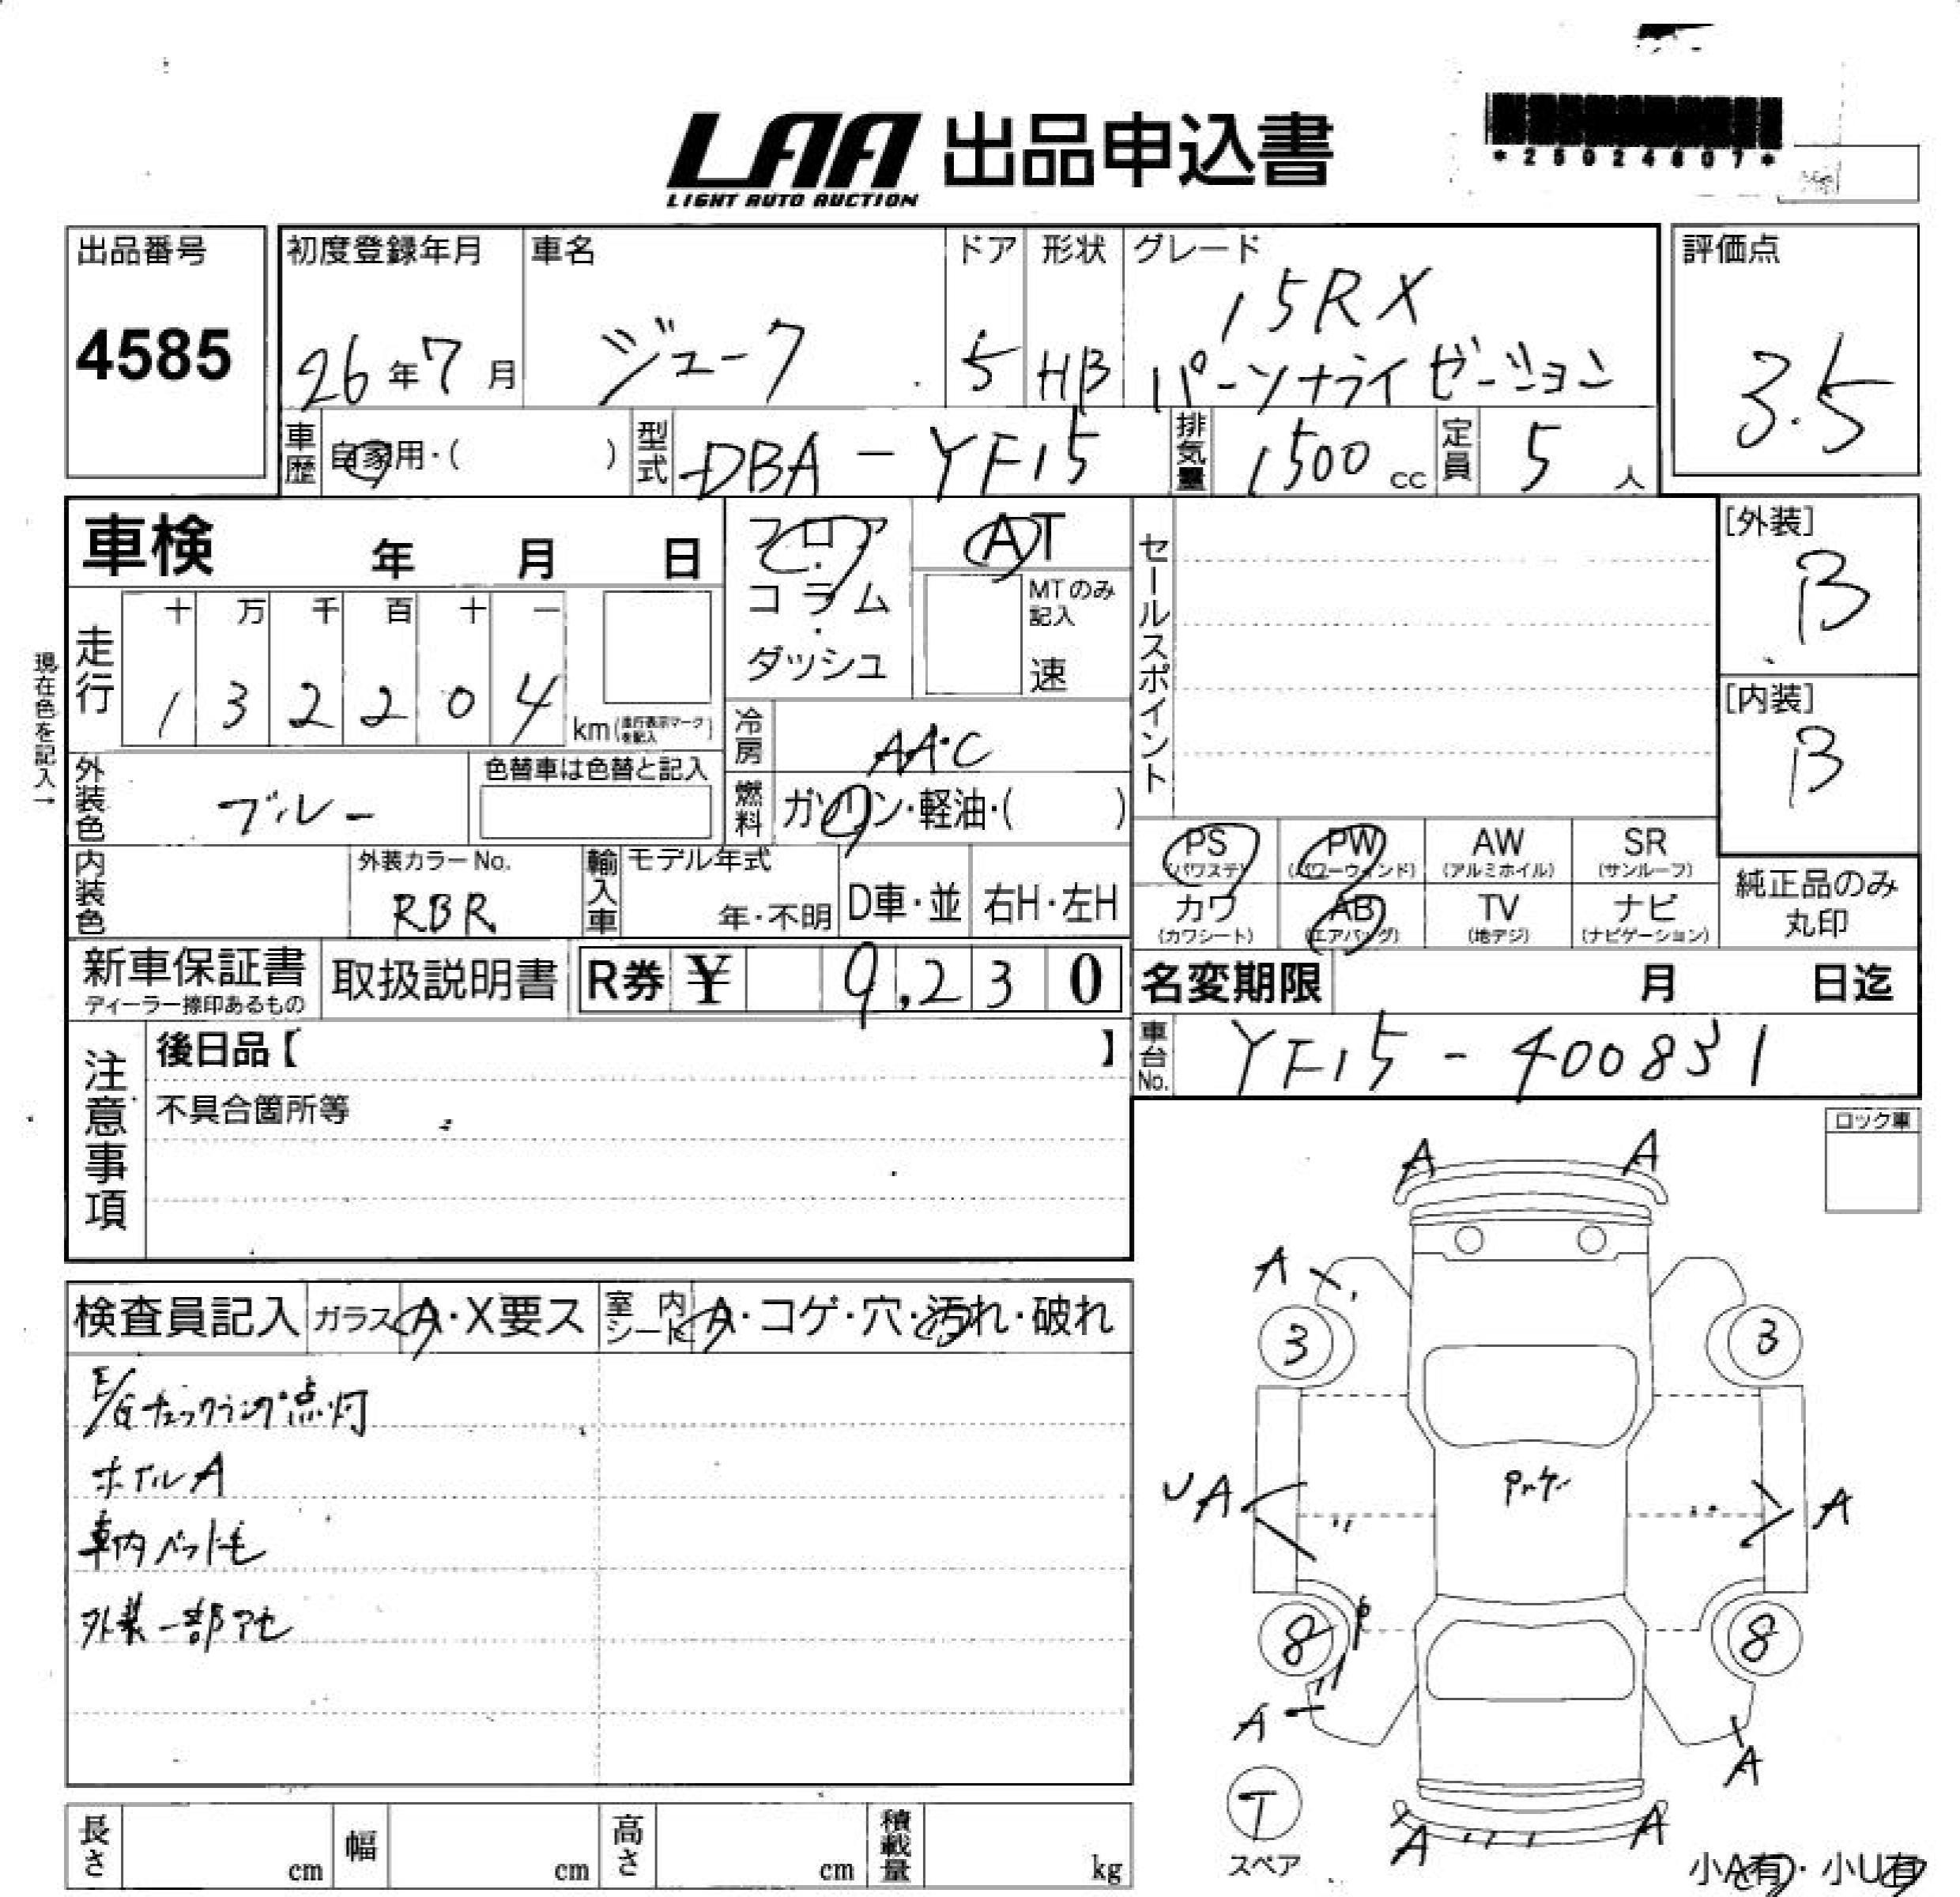 LAA 出品申込書
LIGHT AUTO AUCTION
*25024807*
出品番号
4585
初度登録年月
26年7月
車名
ジューク
ドア
5
形状
HB
グレード
15RX
パーソナライゼーション
評価点
3.5
車歴
自家用・( )
型式
DBA-YF15
排気量
1500 cc
定員
5 人
車検 年 月 日
フロア・コラム・ダッシュ
AT
MTのみ記入
速
セールスポイント
[外装]
B
[内装]
B
現在色を記入→
走行
十 万 千 百 十 一
1 3 2 2 0 4
km(走行表示マークを記入)
冷房
AAC
燃料
ガソリン・軽油・( )
外装色
ブルー
色替車は色替と記入
内装色
外装カラーNo.
RBR
輸入車
モデル年式
年・不明
D車・並
右H・左H
PS
(パワステ)
PW
(パワーウィンド)
AW
(アルミホイル)
SR
(サンルーフ)
カワ
(カワシート)
AB
(エアバッグ)
TV
(地デジ)
ナビ
(ナビゲーション)
純正品のみ丸印
新車保証書
ディーラー捺印あるもの
取扱説明書
R券 ¥ 9,230
名変期限 月 日迄
車台No.
YF15-400831
注意事項
後日品【 】
不具合箇所等
ロック車
検査員記入
ガラス A・X要ス
室内シート A・コゲ・穴・汚れ・破れ
E/Gチェックランプ点灯
ホイルA
車内ペット毛
外装一部アセ
A A
A
3 3
UA A
8 8
A A
T
スペア
A A
小A有・小U有
長さ cm
幅 cm
高さ cm
積載量 kg